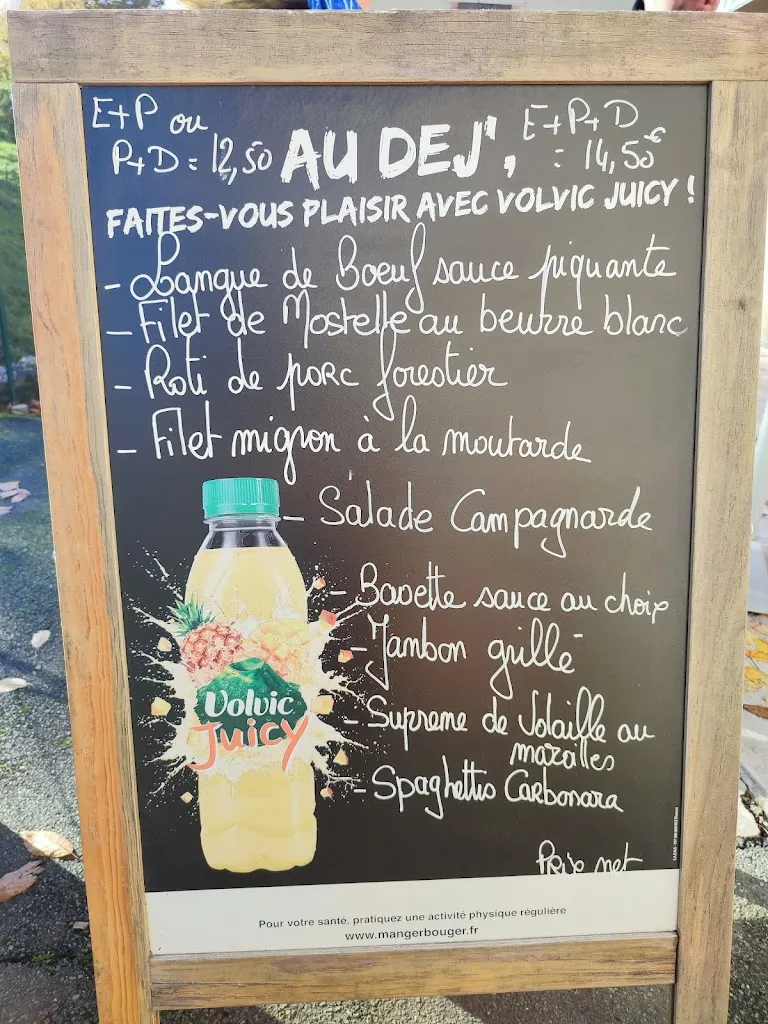 E+P ou
P+D = 12,50
AU DEJ',
E+P+D
= 14,50€
FAITES-VOUS PLAISIR AVEC VOLVIC JUICY !
- Langue de Boeuf sauce piquante
- Filet de Mostelle au beurre blanc
- Roti de porc forestier
- Filet mignon à la moutarde
- Salade Campagnarde
- Bavette sauce au choix
- Jambon grillé
- Supreme de Volaille au
maroilles
- Spaghettis Carbonara
Volvic
Juicy
Prix net
Pour votre santé, pratiquez une activité physique régulière
www.mangerbouger.fr